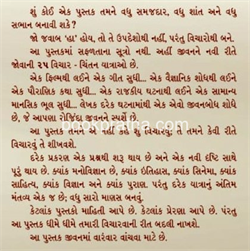 શું કોઈ એક પુસ્તક તમને વધુ સમજદાર, વધુ શાંત અને વધુ
સભાન બનાવી શકે?
જો જવાબ 'હા' હોય, તો તે ઉપદેશોથી નહીં, પરંતુ વિચારોથી બને.
આ પુસ્તકમાં સફળતાના સૂત્રો નથી. અહીં જીવનને નવી રીતે
જોવાની ૨૫ વિચાર - ચિંતન યાત્રાઓ છે.
એક ફિલ્મથી લઈને એક ગીત સુધી... એક વૈજ્ઞાનિક શોધથી લઈને
એક પૌરાણિક કથા સુધી... એક રાજકીય ઘટનાથી લઈને એક સામાન્ય
માનવીક ભૂલ સુધી... લેખક દરેક ઘટનામાંથી એક એવો જીવનબોધ શોધે
છે, જે આપણા રોજિંદા જીવનને સ્પર્શે છે.
આ પુસ્તક તમને શું વિચારવું; તે તમને કેવી રીતે
વિચારવું તે શીખવશે.
દરેક પ્રકરણ એક પ્રશ્નથી શરૂ થાય છે અને એક નવી દૃષ્ટિ સાથે
પૂરું થાય છે. ક્યાંક મનોવિજ્ઞાન છે, ક્યાંક ઇતિહાસ, ક્યાંક સિનેમા, ક્યાંક
સાહિત્ય, ક્યાંક વિજ્ઞાન અને ક્યાંક પુરાણ. પરંતુ દરેક યાત્રાનું અંતિમ
મંતવ્ય એક જ છે; વધુ સારો માણસ બનવું.
કેટલાંક પુસ્તકો માહિતી આપે છે. કેટલાંક પ્રેરણા આપે છે. પરંતુ
આ પુસ્તક ધીમે ધીમે તમારી વિચારવાની રીત બદલી નાખશે.
આ પુસ્તક જીવનમાં વારંવાર વાંચવા માટે છે.